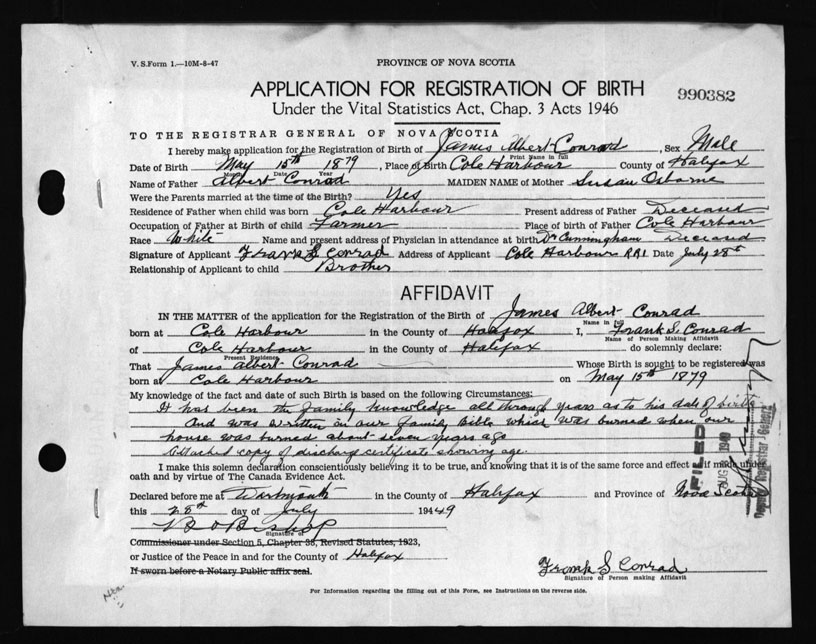 V. S. Form 1.—10M-8-47
PROVINCE OF NOVA SCOTIA
APPLICATION FOR REGISTRATION OF BIRTH
990382
Under the Vital Statistics Act, Chap. 3 Acts 1946
TO THE REGISTRAR GENERAL OF NOVA SCOTIA
I hereby make application for the Registration of Birth of James Albert Conrad, Sex Male
Print Name in full
Date of Birth May 15th 1879, Place of Birth Cole Harbour County of Halifax
Month Date Year
Name of Father Albert Conrad MAIDEN NAME of Mother Susan Osborne
Were the Parents married at the time of the Birth? Yes
Residence of Father when child was born Cole Harbour Present address of Father Deceased
Occupation of Father at Birth of child Farmer Place of birth of Father Cole Harbour
Race White Name and present address of Physician in attendance at birth Dr Cunningham Deceased
Signature of Applicant Frank S. Conrad Address of Applicant Cole Harbour RR1 Date July 28th
Relationship of Applicant to child Brother
AFFIDAVIT
IN THE MATTER of the application for the Registration of the Birth of James Albert Conrad
Name in full
born at Cole Harbour in the County of Halifax I, Frank S. Conrad
Name of Person Making Affidavit
of Cole Harbour in the County of Halifax do solemnly declare:
Present Residence
That James Albert Conrad Whose Birth is sought to be registered was
born at Cole Harbour on May 15th 1879
My knowledge of the fact and date of such Birth is based on the following Circumstances:
It has been the family knowledge all through years as to his date of birth
And was written in our family Bible which was burned when our
house was burned about seven years ago
Attached copy of discharge certificate showing age.
I make this solemn declaration conscientiously believing it to be true, and knowing that it is of the same force and effect as if made under
oath and by virtue of The Canada Evidence Act.
Declared before me at Dartmouth in the County of Halifax and Province of Nova Scotia
this 28th day of July 194 49
Signature of
Commissioner under Section 5, Chapter 38, Revised Statutes, 1923,
or Justice of the Peace in and for the County of Halifax
If sworn before a Notary Public affix seal.
Frank S Conrad
Signature of Person making Affidavit
For Information regarding the filling out of this Form, see Instructions on the reverse side.
FILED
Deputy Registrar General